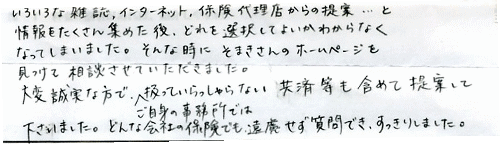 いろいろな雑誌,インターネット,保険代理店からの提案…と
情報をたくさん集めた後、どれを選択してよいかわからなく
なってしまいました。そんな時に そまきさんのホームページを
見つけて 相談させていただきました。
大変誠実な方で、ご自身の事務所では扱っていらっしゃらない 共済等も含めて 提案して
下さいました。どんな会社の保険でも、遠慮せず質問でき、すっきりしました。